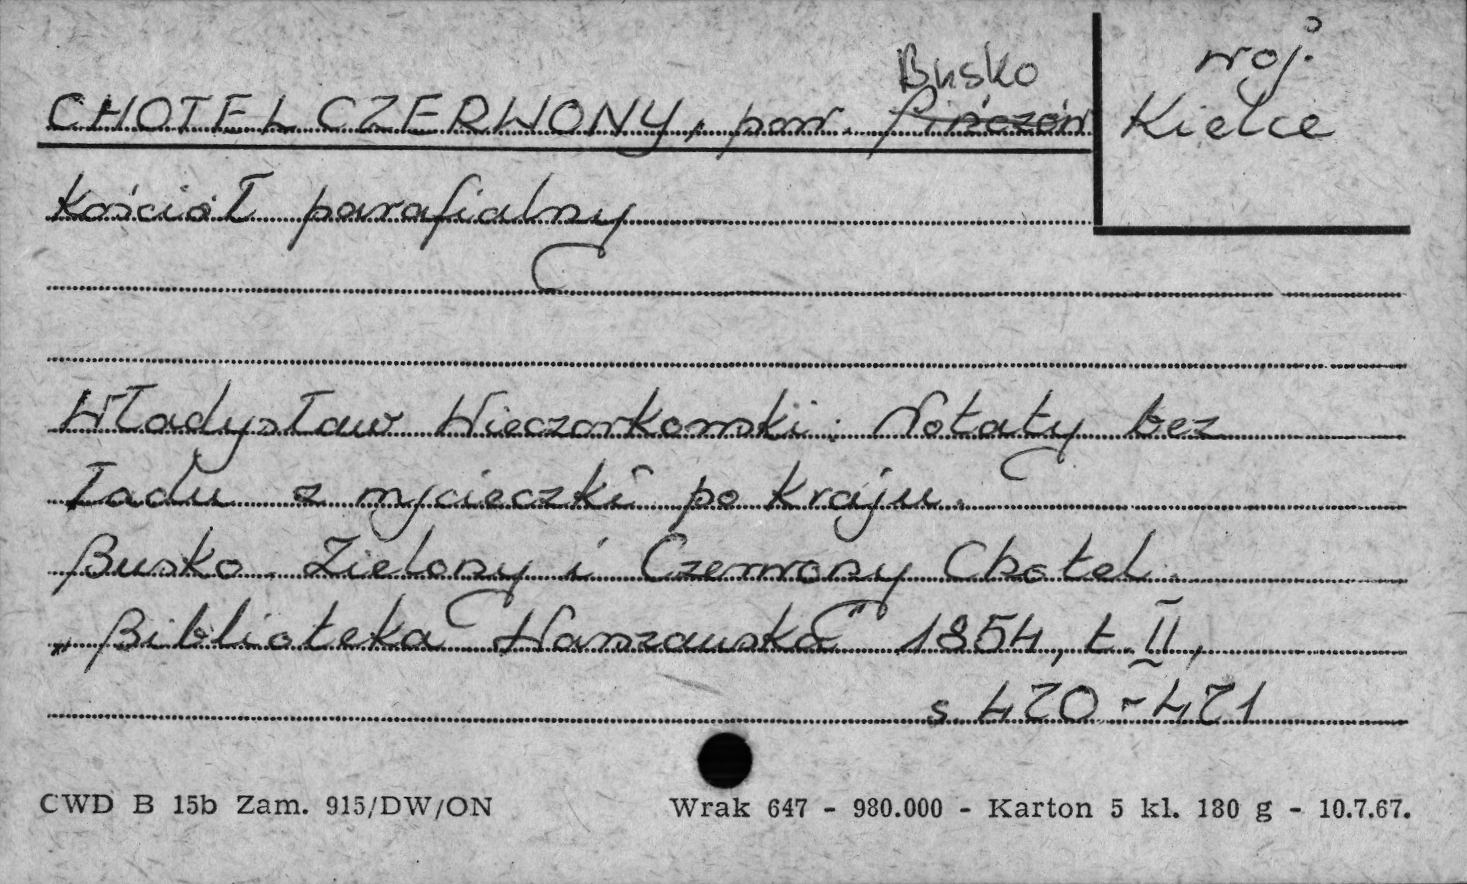 Busko
CHOTEL CZERWONY, pow. Pińczów
woj.
Kielce
Kościół parafialny
Władysław Wieczorkowski: Notaty bez
ładu z wycieczki po kraju.
Busko. Zielony i Czerwony Chotel.
„Biblioteka Warszawska" 1854, t. II,
s. 420-421
CWD B 15b Zam. 915/DW/ON
Wrak 647 - 980.000 - Karton 5 kl. 180 g - 10.7.67.